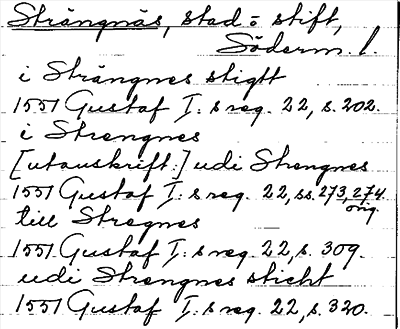 Strängnäs, stad o stift,
Söderm. l.
i Strängnes stigtt
1551 Gustaf I:s reg. 22, s. 202.
i Strengnes
[utanskrift:] udi Strengnes
1551 Gustaf I:s reg. 22, ss. 273, 274
orig.
till Stregnes
1551 Gustaf I:s reg. 22, s. 309.
udi Strengnes sticht
1551 Gustaf I:s reg. 22, s. 320.